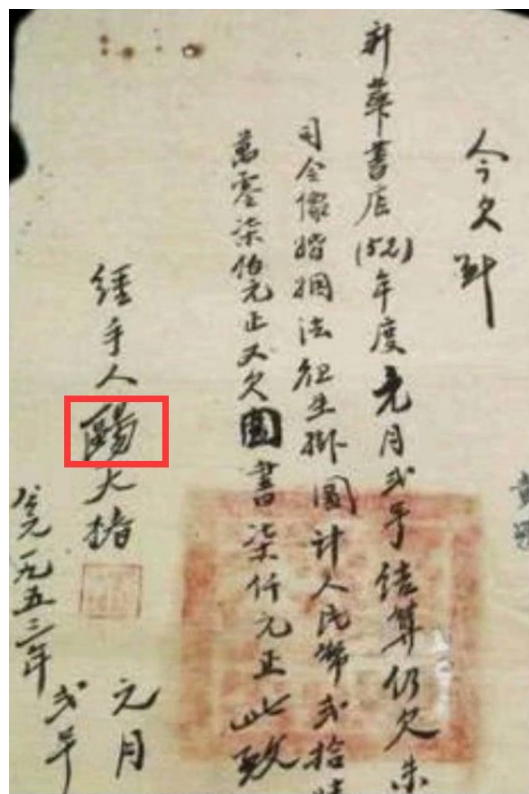 今欠到
新華書店(52)年度元月弍号结算仍欠朱
司令像婚姻法衛生掛圖計人民幣弍拾
萬零柒佰元正又欠圖書柒仟元正此致
経手人
公元一九五三年
元月
弍号